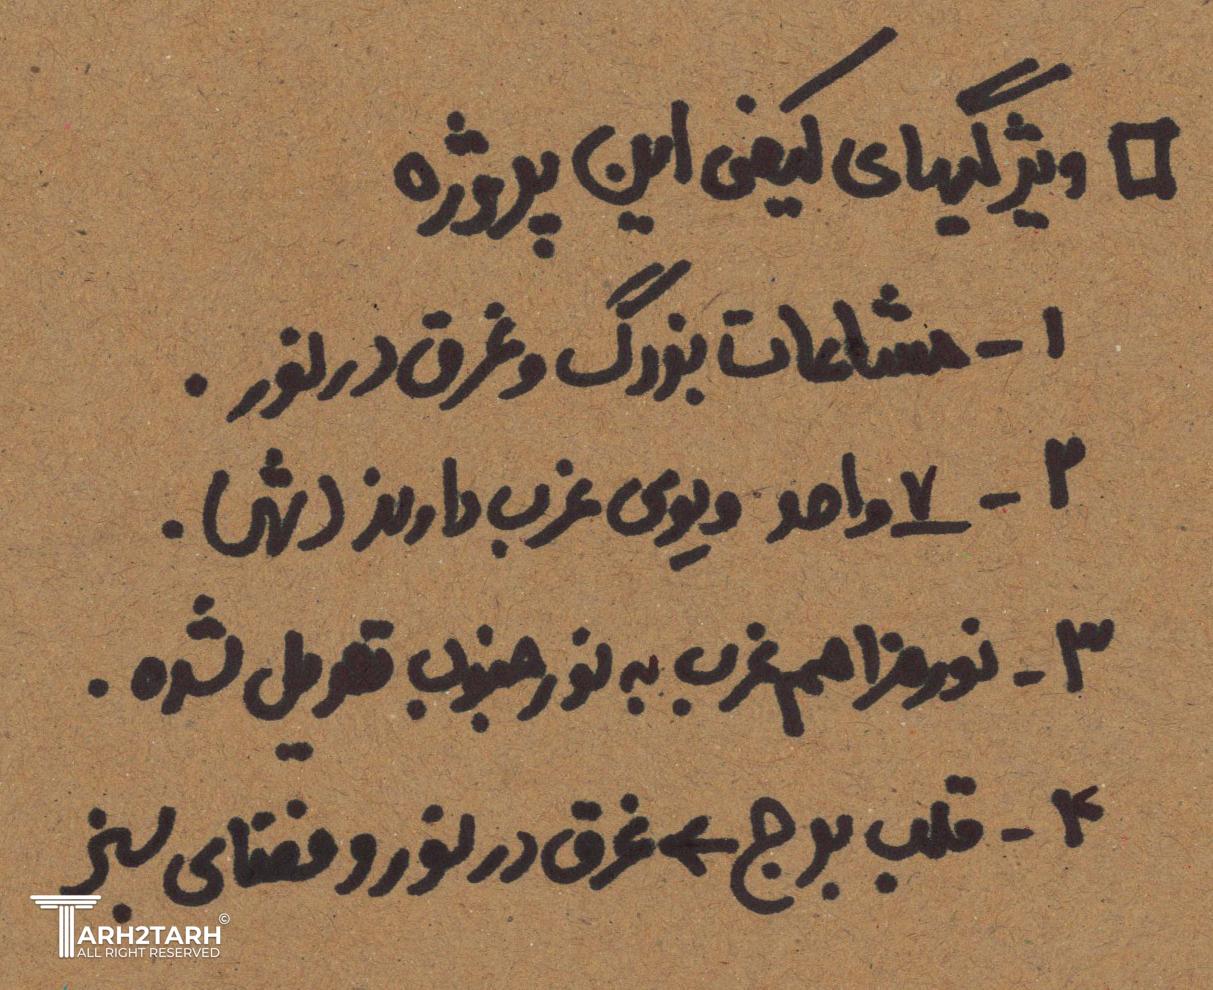 □ ویژگیهای کیفی این پروژه
۱- مشاعات بزرگ و غرق در نور .
۲- ۷ واحد ویوی غرب دارند (شهر) .
۳- نور مزاحم غرب به نور جنوب تعدیل شده .
۴- قلب برج ← غرق در نور و فضای سبز
TARH2TARH ©
ALL RIGHT RESERVED